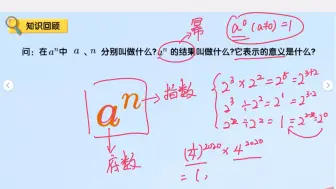 知识回顾
幂
a⁰(a≠0)=1
问：在aⁿ中 a 、n 分别叫做什么?aⁿ 的结果叫做什么?它表示的意义是什么?
aⁿ
指数
底数
2³×2²=2⁵=2³⁺²
2³÷2²=2¹=2³⁻²
2²÷2²=1=2²⁻²=2⁰
(1/4)²⁰²⁰×4²⁰²⁰
=(